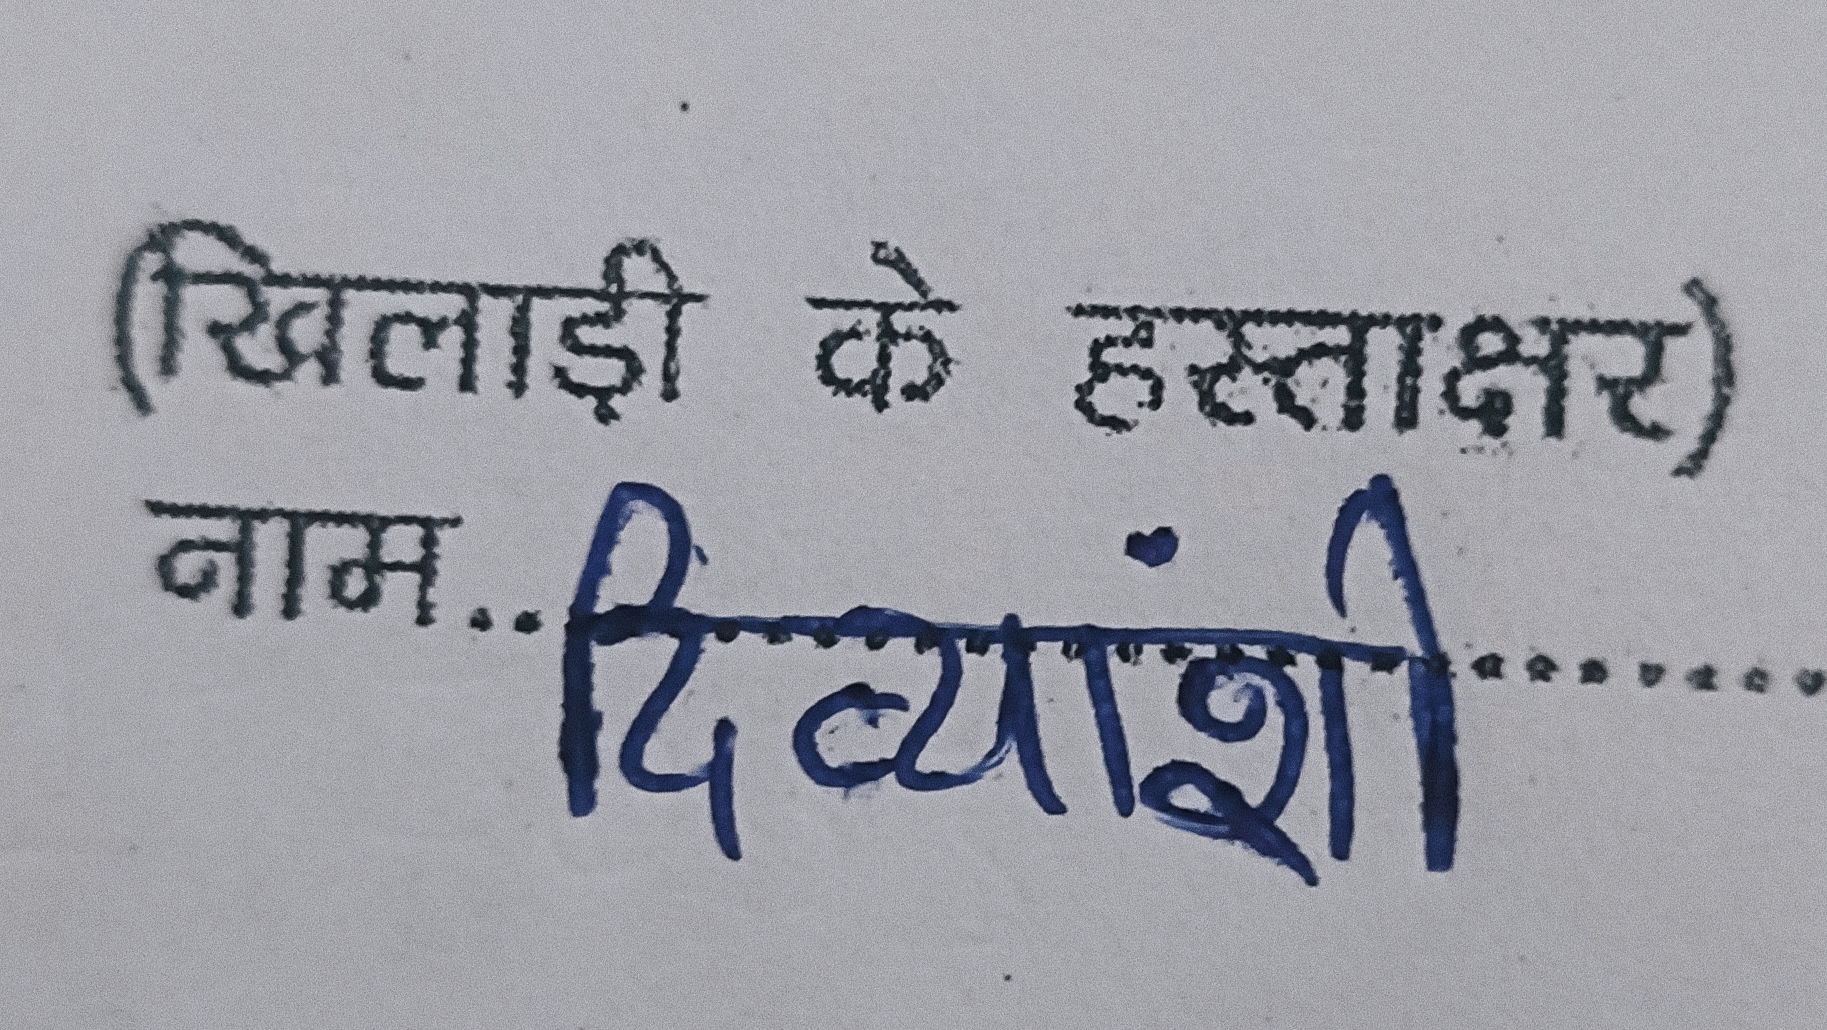 (खिलाड़ी के हस्ताक्षर)
नाम..दिव्यांशी........